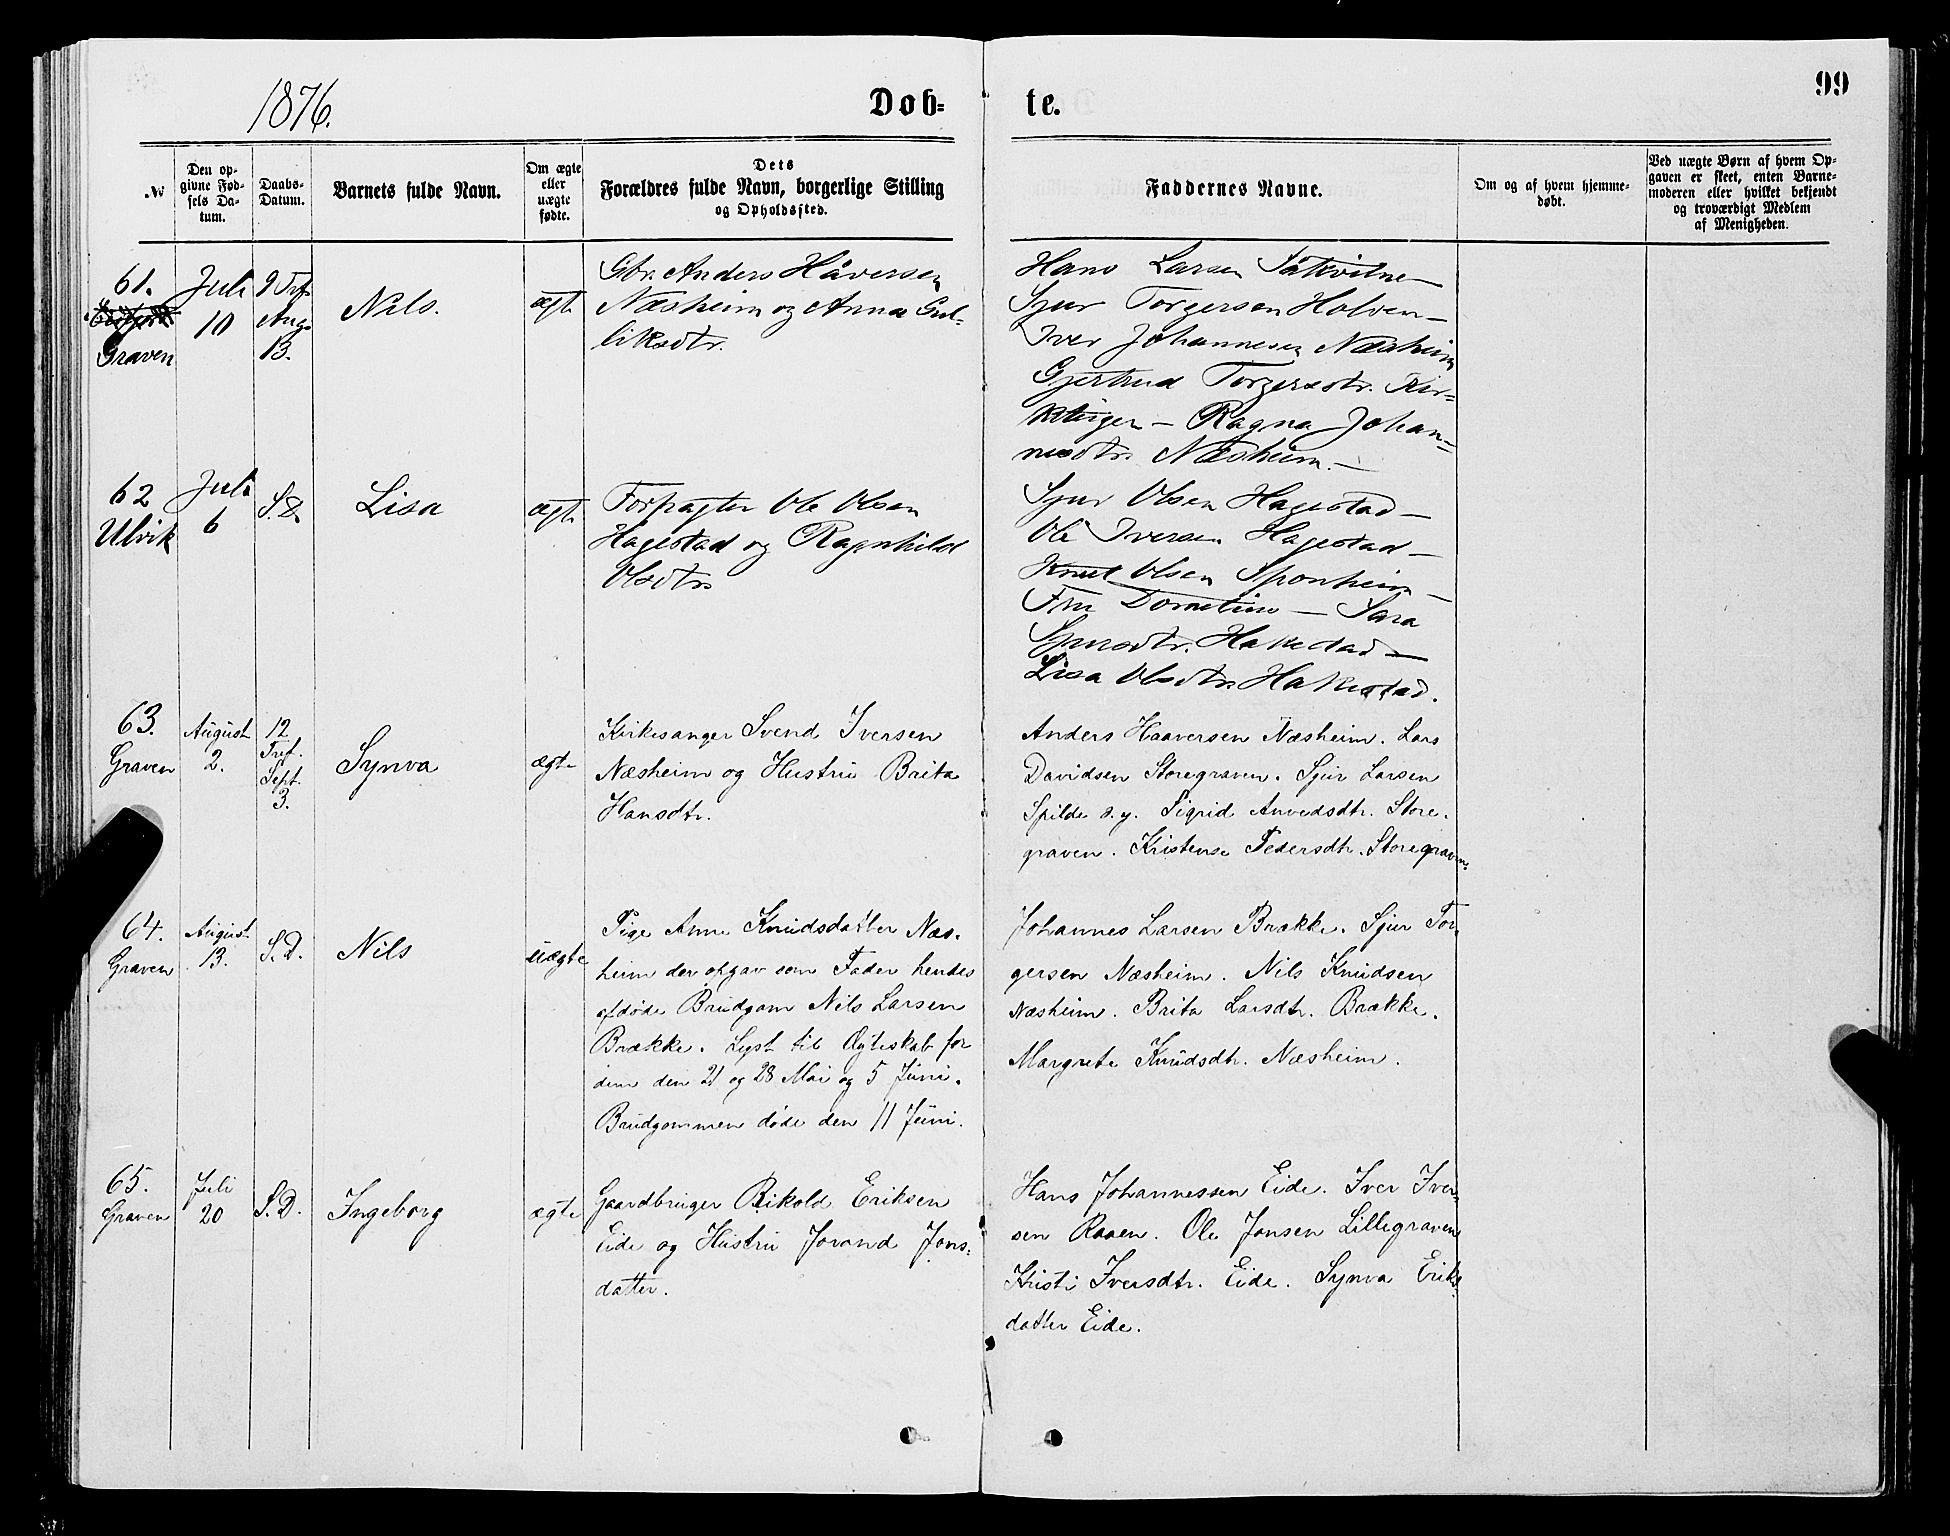 1876.
Døb-
te.
99
№
Den op-
givne Fød-
sels Da-
tum.
Daabs-
Datum.
Barnets fulde Navn.
Om ægte
eller
uægte
fødte.
Dets
Forældres fulde Navn, borgerlige Stilling
og Opholdssted.
Faddernes Navne.
Om og af hvem hjemme-
døbt.
Ved uægte Børn af hvem Op-
gaven er skeet, enten Barne-
moderen eller hvilket bekjendt
og troværdigt Medlem
af Menigheden.
61.
Graven
Juli
10
9 Tref.
Aug.
13.
Nils.
ægt.
Gbr. Anders Håversen
Næsheim og Anna Gul-
liksdtr.
Hans Larsen Såkvitne—
Sjur Torgersen Holven—
Iver Johannesen Næsheim
Gjertrud Torgersdtr. Kir-
— Ragna Johan-
nesdtr. Næsheim.—
62
Ulvik
Juli
6
S. D.
Lisa
ægt.
Forpagter Ole Olsen
Hagestad og Ragnhild
Olsdtr.
Sjur Olsen Hagestad—
Ole Iversen Hagestad—
Knut Olsen Sponheim—
Fru — Sara
Sjursdtr. Hakestad—
Lisa Olsdtr. Hakestad.
63.
Graven
August
2.
12
Tref.
Sept.
3.
Synva
ægt.
Kirkesanger Svend Iversen
Næsheim og Hustru Brita
Hansdtr.
Anders Haaversen Næsheim. Lars
Davidsen Storegraven. Sjur Larsen
Spilde s. y. Sigrid Anvedsdtr. Store-
graven. Kristense Pedersdtr. Storegraven.
64.
Graven
August
13.
S. D.
Nils
uægte
Pige Anna Knudsdatter Næs-
heim der opgav som Fader hendes
afdøde Brudgom Nils Larsen
Brække. Lyst til Ægteskab for
dem den 21 og 28 Mai og 5 Juni.
Brudgommen døde den 11 Juni.
Johannes Larsen Brække. Sjur Tor-
gersen Næsheim. Nils Knudsen
Næsheim. Brita Larsdtr. Brække.
Margreta Knudsdtr. Næsheim.
65.
Graven
Juli
20
S. D.
Ingeborg
ægte
Gaardbruger Rikold Eriksen
Eide og Hustru Jorand Jons-
datter.
Hans Johannessen Eide. Iver Iver-
sen Raaen. Ole Jonsen Lillegraven
Kristi Iversdtr. Eide. Synva Eriks-
datter Eide.